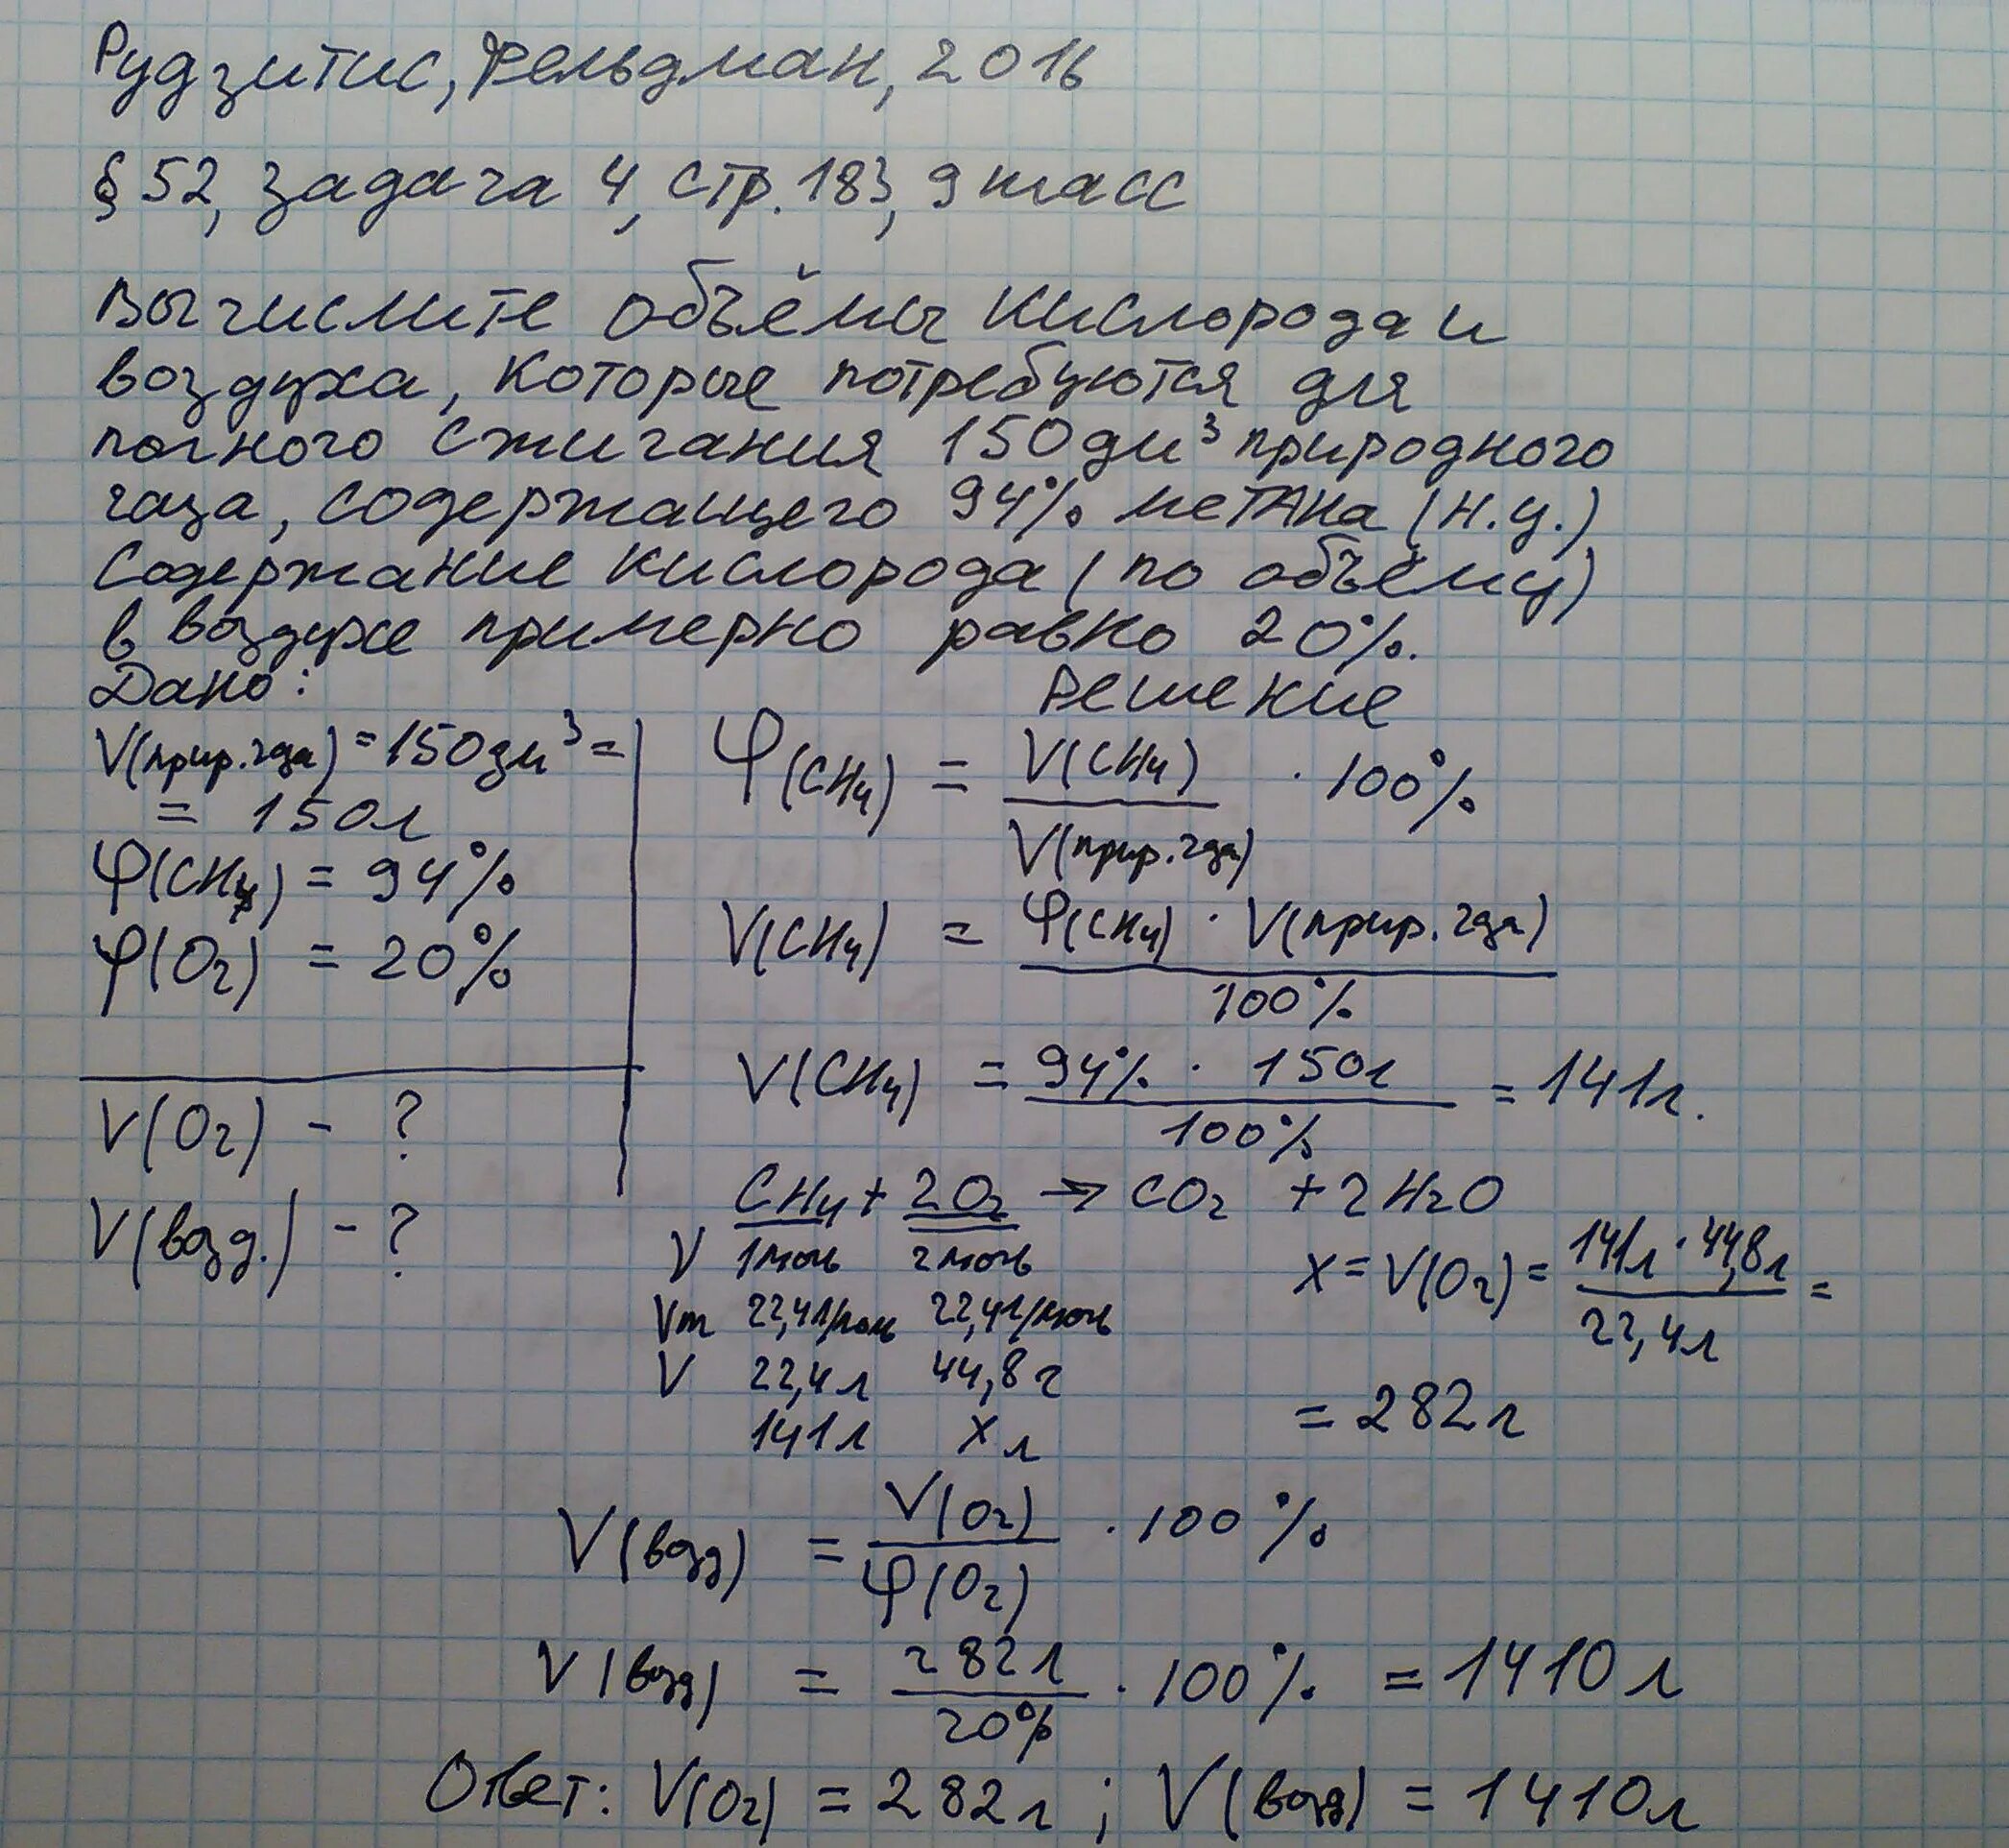 Рудзитис, Фельдман, 2016
§ 52, задача 4, стр. 183, 9 класс
Вычислите объёмы кислорода и
воздуха, которые потребуются для
полного сжигания 150 дм³ природного
газа, содержащего 94% метана (н.у.)
Содержание кислорода (по объёму)
в воздухе примерно равно 20%.
Дано:
V(прир. газа) = 150 дм³ =
= 150 л
φ(CH₄) = 94%
φ(O₂) = 20%
V(O₂) - ?
V(возд.) - ?
Решение
φ(CH₄) = V(CH₄) / V(прир. газа) · 100%
V(CH₄) = φ(CH₄) · V(прир. газа) / 100%
V(CH₄) = 94% · 150 л / 100% = 141 л.
CH₄ + 2O₂ → CO₂ + 2H₂O
ν 1 моль 2 моль
Vm 22,4 л/моль 22,4 л/моль
V 22,4 л 44,8 г
141 л x л
x = V(O₂) = 141 л · 44,8 л / 22,4 л =
= 282 л
V(возд) = V(O₂) / φ(O₂) · 100%
V(возд) = 282 л / 20% · 100% = 1410 л
Ответ: V(O₂) = 282 л ; V(возд) = 1410 л